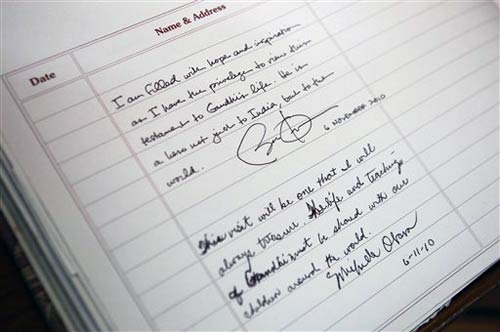 Name & Address
Date
I am filled with hope and inspiration
as I have the privilege to view this
testament to Gandhi's life. He is
a hero not just to India, but to the
world.
6 November 2010
This visit will be one that I will
always treasure. The life and teachings
of Gandhi must be shared with our
children around the world.
Michelle Obama
6-11-10